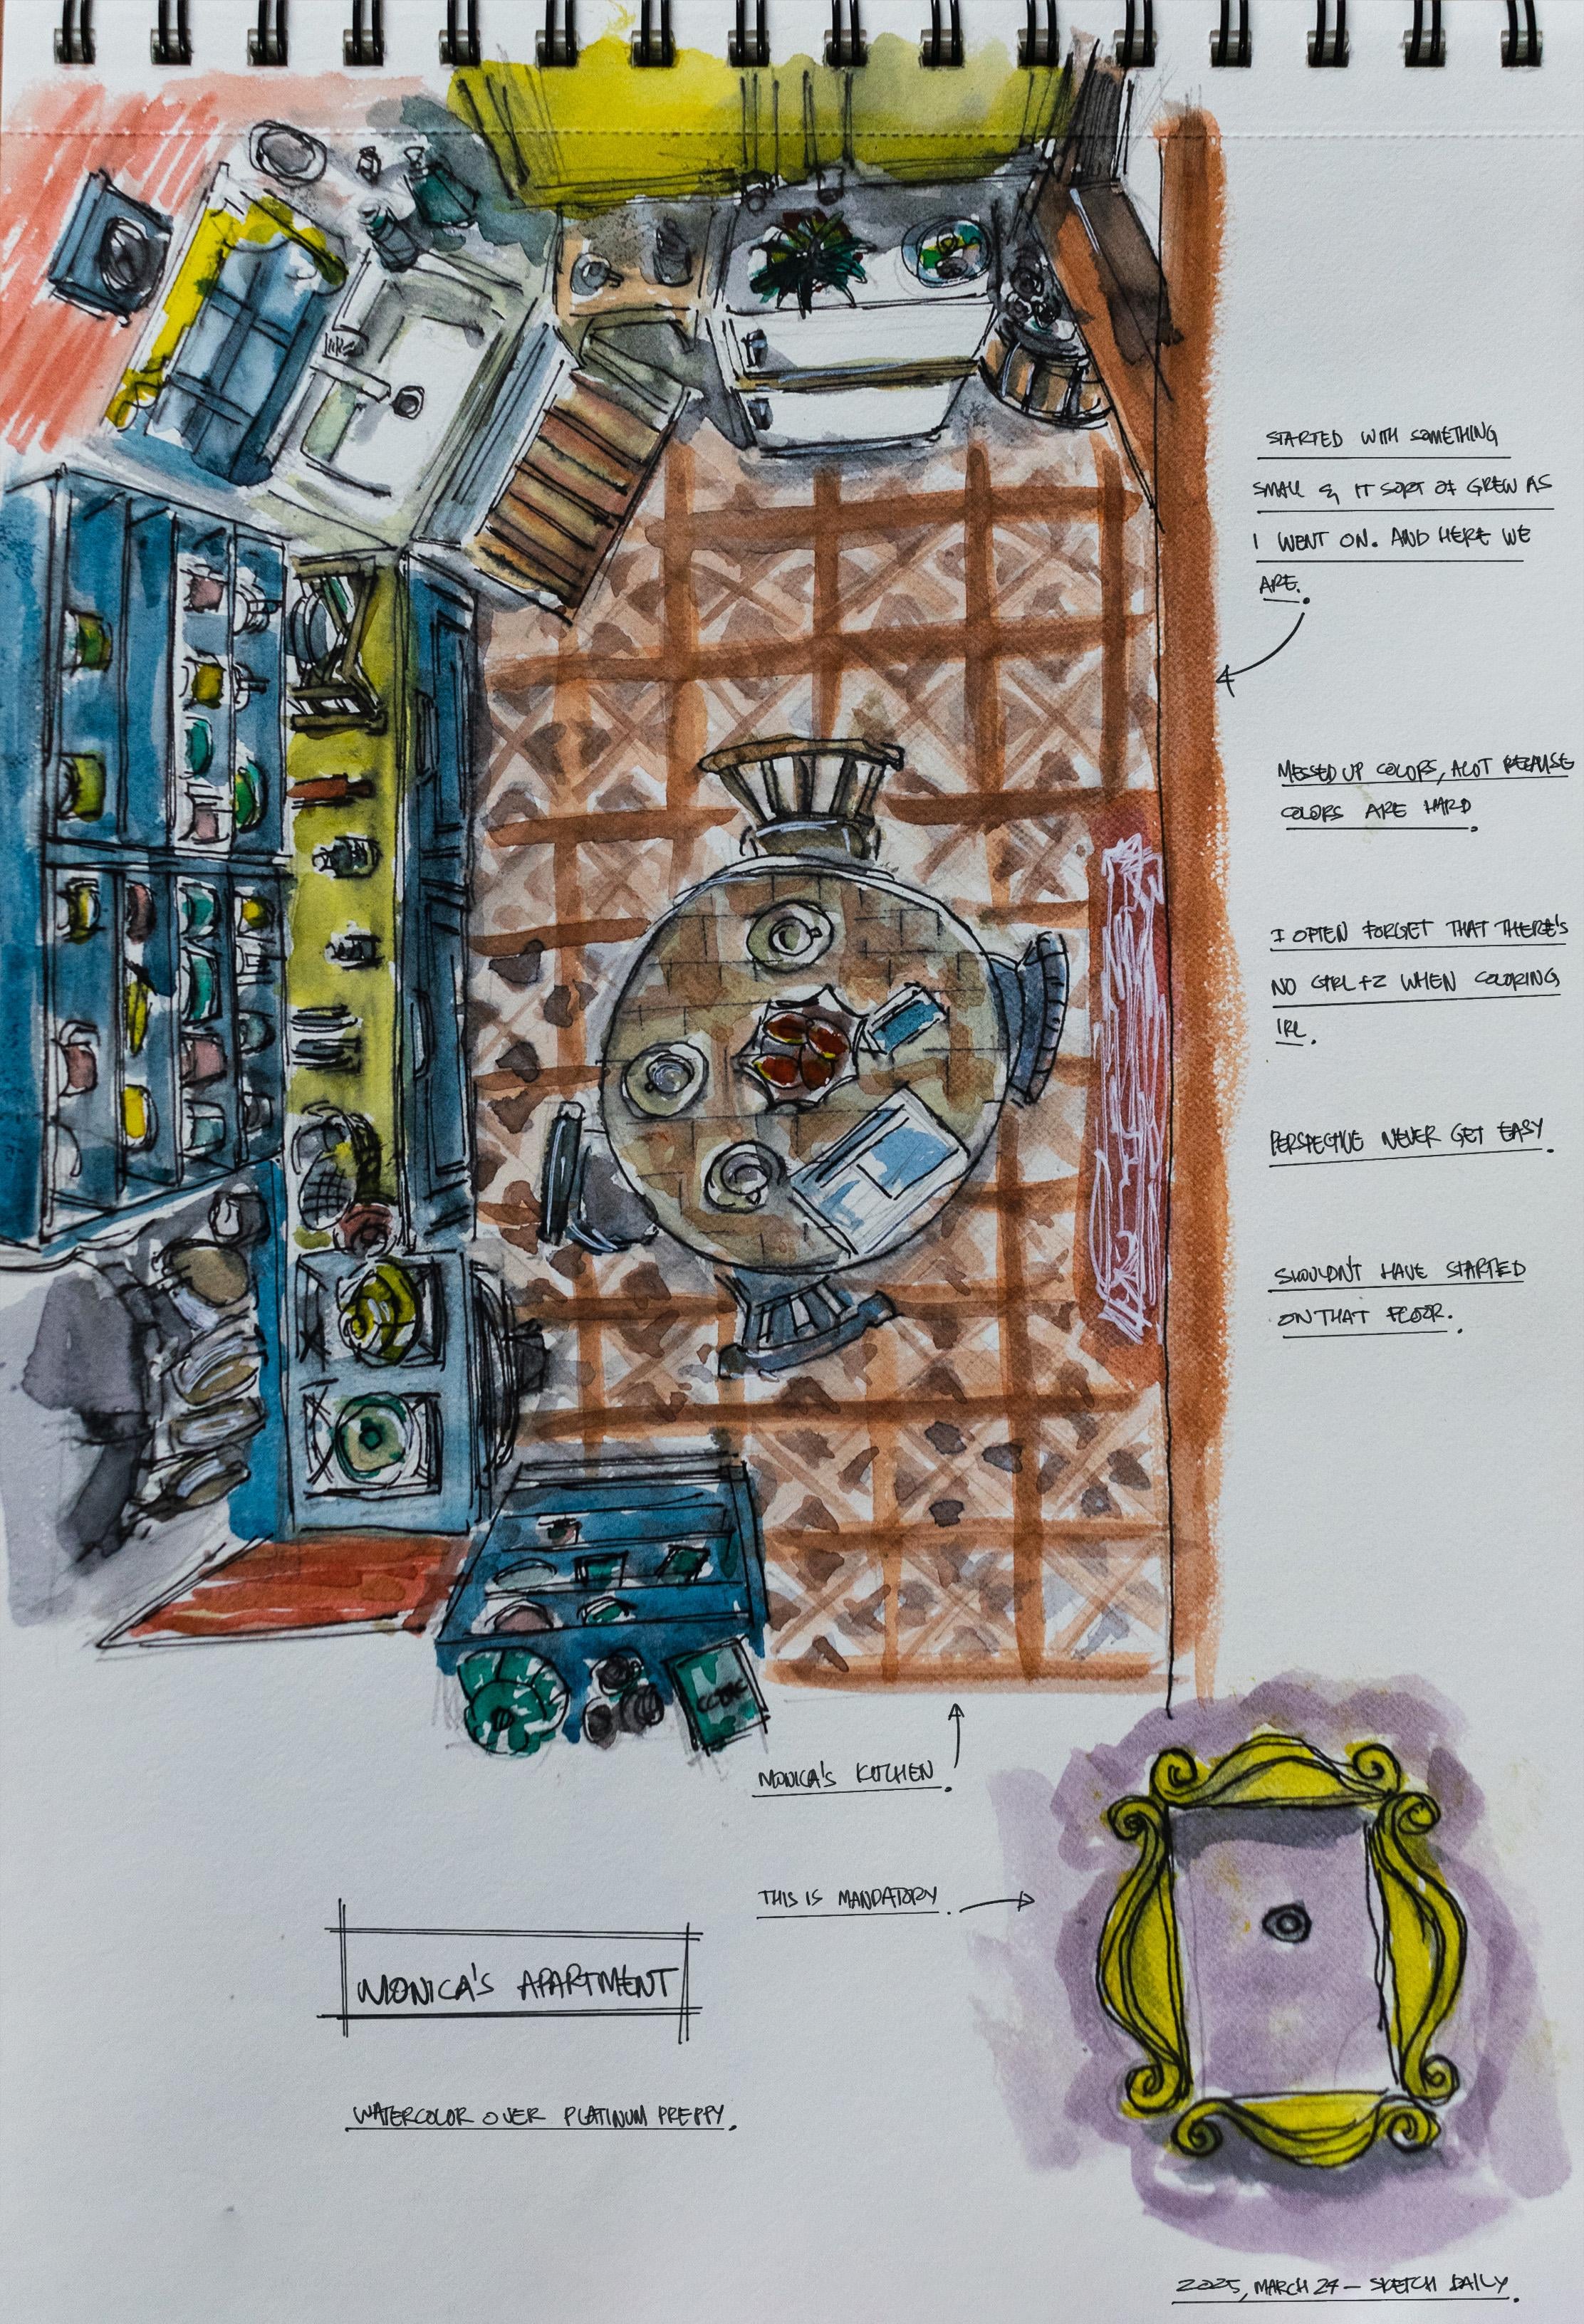 STARTED WITH SOMETHING
SMALL & IT SORT OF GREW AS
I WENT ON. AND HERE WE
ARE.
MESSED UP COLORS, ALOT BECAUSE
COLORS ARE HARD.
I OFTEN FORGET THAT THERE'S
NO CTRL+Z WHEN COLORING
IRL.
PERSPECTIVE NEVER GET EASY.
SHOULDN'T HAVE STARTED
ON THAT FLOOR.
MONICA'S KITCHEN.
THIS IS MANDATORY.
MONICA'S APARTMENT
WATERCOLOR OVER PLATINUM PREPPY.
2025, MARCH 24 - SKETCH DAILY.